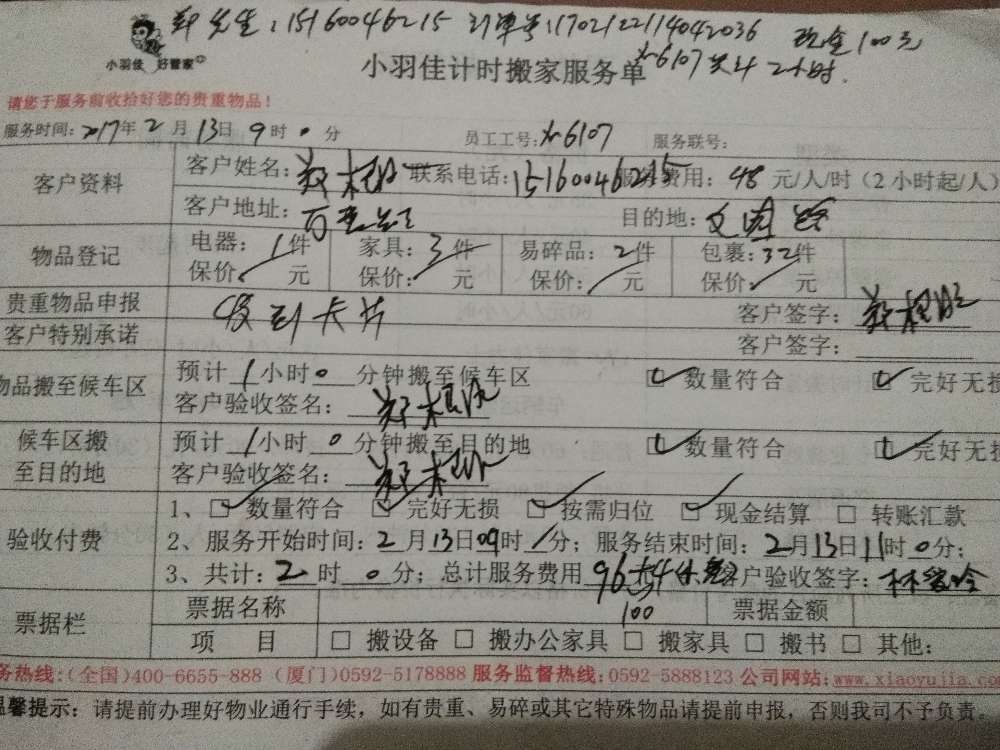 郑先生:15160046215 订单号:1702122114042036 现金100元
小羽佳 好管家
小羽佳计时搬家服务单 6107共计2小时.
请您于服务前收拾好您的贵重物品!
服务时间:2017年2月13日9时0分 员工工号:6107 服务联号:
客户资料 客户姓名:郑 联系电话:15160046215 服务费用:48元/人/时(2小时起/人)
客户地址: 目的地:文园路
物品登记 电器:1件 家具:3件 易碎品:2件 包裹:32件
保价: 元 保价: 元 保价: 元 保价: 元
贵重物品申报 收到卡片 客户签字:郑
客户特别承诺 客户签字:
物品搬至候车区 预计1小时0分钟搬至候车区 数量符合 完好无损
客户验收签名:郑
候车区搬至目的地 预计1小时0分钟搬至目的地 数量符合 完好无损
客户验收签名:郑
验收付费 1、数量符合 完好无损 按需归位 现金结算 转账汇款
2、服务开始时间:2月13日09时 分;服务结束时间:2月13日11时0分;
3、共计:2时0分;总计服务费用96 客户验收签字:林
100
票据栏 票据名称 票据金额
项 目 搬设备 搬办公家具 搬家具 搬书 其他:
务热线:(全国)400-6655-888 (厦门)0592-5178888 服务监督热线:0592-5888123 公司网站:www.xiaoyujia.com
温馨提示:请提前办理好物业通行手续,如有贵重、易碎或其它特殊物品请提前申报,否则我司不予负责。